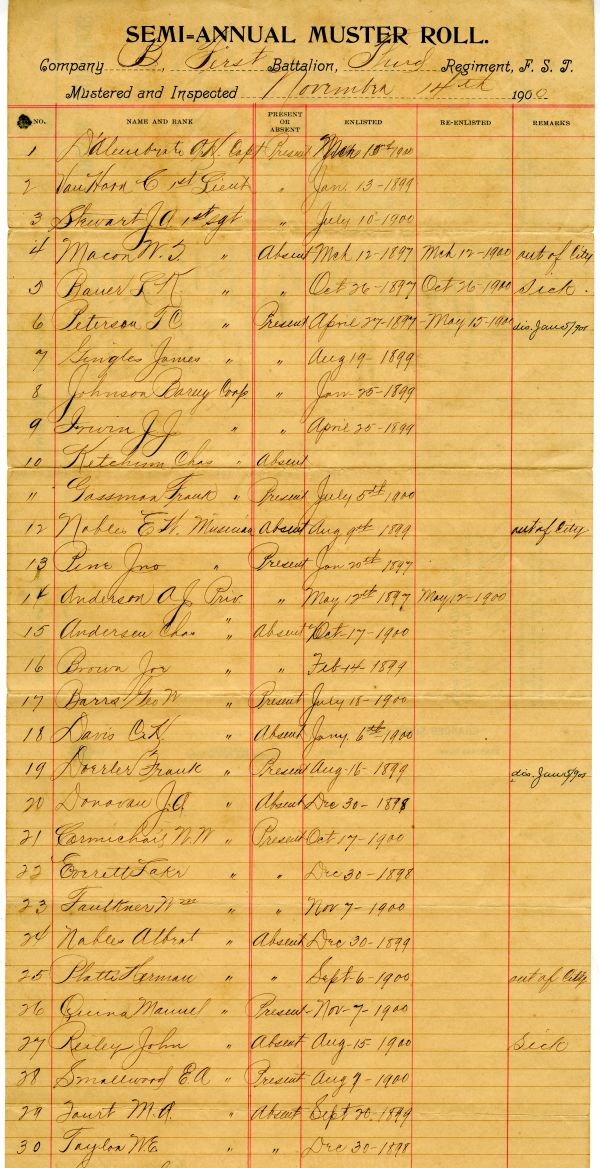 SEMI-ANNUAL MUSTER ROLL.
Company B, First Battalion, Third Regiment, F. S. T.
Mustered and Inspected November 14th 1900
NO. NAME AND RANK PRESENT OR ABSENT ENLISTED RE-ENLISTED REMARKS
1 D'Alemberte Capt Present 1900
2 Van Horn C 1st Lieut " Jan. 13-1899
3 Stewart J.A. 1st Sgt " July 10-1900
4 Macon W.S. " Absent Mch 12-1897 Mch 12-1900 out of City
5 Bauer S.K. " " Oct 26-1897 Oct 26-1900 Sick.
6 Peterson T C " Present April 27-1897 May 15-1900 dis. Jan
7 Gingles James " " Aug 19-1899
8 Johnson Barny Corp " Jan-25-1899
9 Irwin J.J. " " April 25-1899
10 Ketchum Chas " Absent
11 Gassman Frank " Present July 5th 1900
12 Nobles E.W. Musician Absent Aug 9th 1899 out of City
13 Pine Jno " Present Jan 20th 1897
14 Anderson A.J. Priv. " May 12th 1897 May 12-1900
15 Andersen Chas " Absent Oct-17-1900
16 Brown Joe " " Feb 14 1899
17 Barrs Geo W " Present July 18-1900
18 Davis C.K. " Absent Jany 6th 1900
19 Doerler Frank " Present Aug-16-1899 dis. Jan
20 Donovan J.A. " Absent Dec 30-1898
21 Cormichais W.W " Present Oct 17-1900
22 Everett " " Dec 30-1898
23 Faulkner Wm " " Nov 7-1900
24 Nobles Albrat " Absent Dec 30-1899
25 Platts Herman " " Sept-6-1900 out of City
26 Quina Manuel " Present Nov-7-1900
27 Realey John " Absent Aug-15-1900 Sick
28 Smallwood E.A " Present Aug 9-1900
29 M.A. " Absent Sept 20-1899
30 Taylor W.E. " " Dec 30-1898